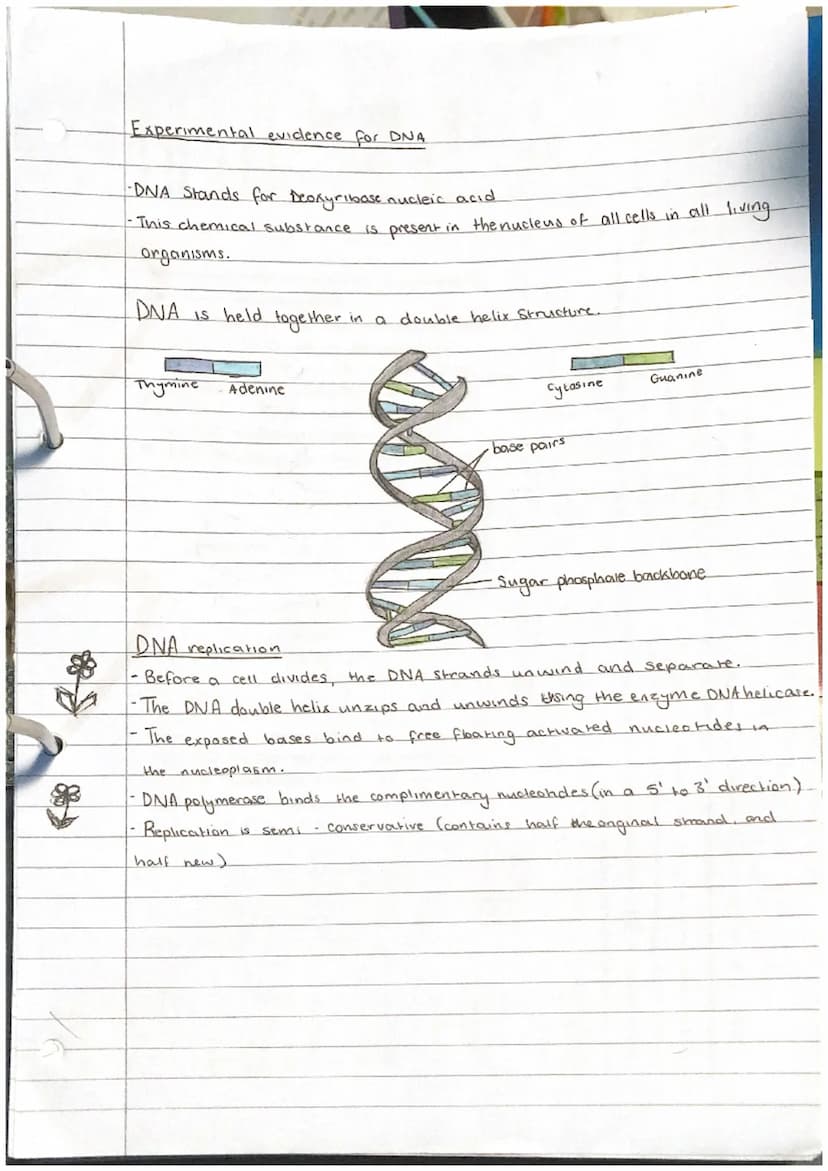 Experimental evidence for DNA
- DNA Stands for Deoxyribose nucleic acid
- This chemical substance is present in the nucleus of all cells in all living
organisms.
DNA is held together in a double helix structure.
Thymine Adenine
Cytosine Guanine
base pairs
Sugar phosphate backbone
DNA replication
- Before a cell divides, the DNA strands unwind and separate.
- The DNA double helix unzips and unwinds using the enzyme DNA helicase.
- The exposed bases bind to free floating activated nucleotides in
the nucleoplasm.
- DNA polymerase binds the complimentary nucleotides (in a 5' to 3' direction)
- Replication is semi - conservative (contains half the original strand, and
half new)